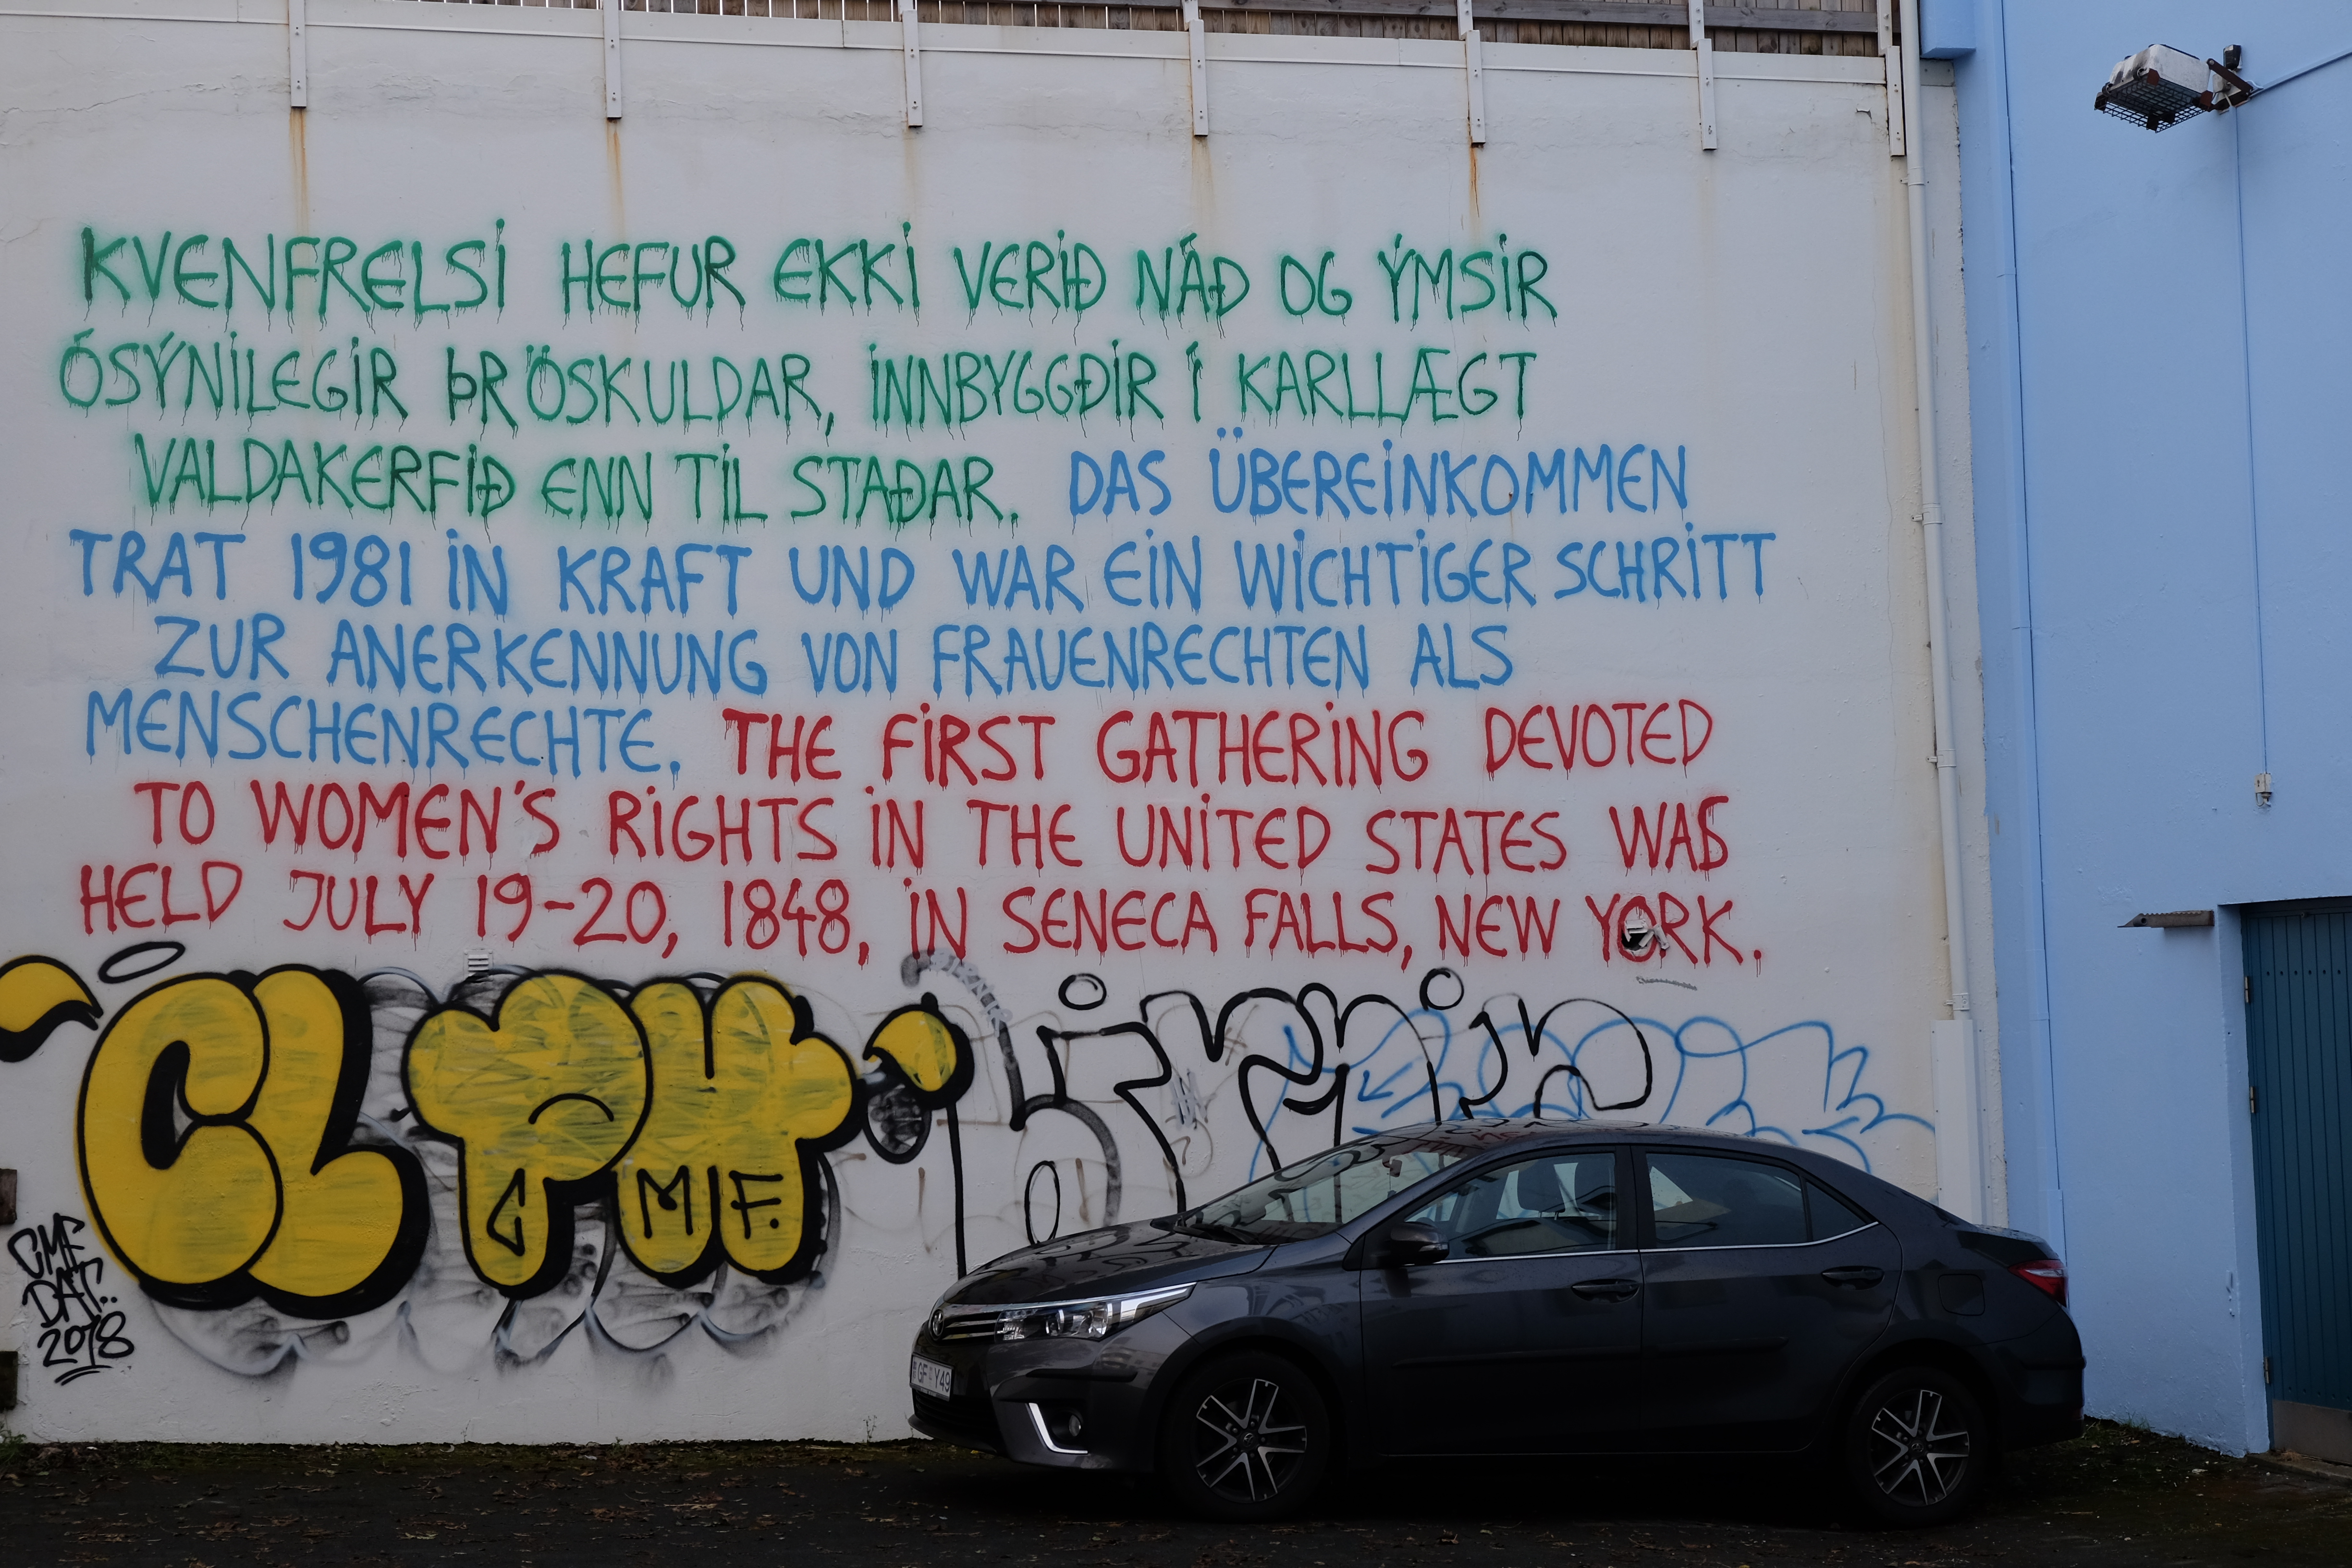 KVENFRELSI HEFUR EKKI VERIÐ NÁÐ OG ÝMSIR
ÓSÝNILEGIR ÞRÖSKULDAR, INNBYGGÐIR Í KARLLÆGT
VALDAKERFIÐ ENN TIL STAÐAR. DAS ÜBEREINKOMMEN
TRAT 1981 IN KRAFT UND WAR EIN WICHTIGER SCHRITT
ZUR ANERKENNUNG VON FRAUENRECHTEN ALS
MENSCHENRECHTE. THE FIRST GATHERING DEVOTED
TO WOMEN'S RIGHTS IN THE UNITED STATES WAS
HELD JULY 19-20, 1848, IN SENECA FALLS, NEW YORK.
MF.
2018
GF Y49